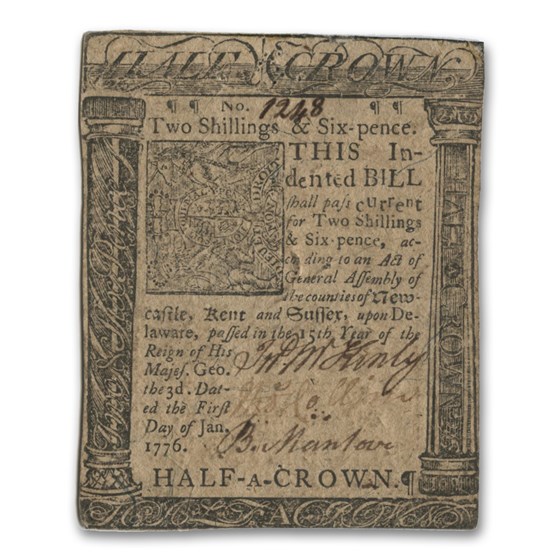 HALF A CROWN.
¶ ¶ No. 1248 ¶ ¶
Two Shillings & Six-pence.
THIS In-
dented BILL
shall pass current
for Two Shillings
& Six-pence, ac-
cording to an Act of
General Assembly of
the counties of New-
castle, Kent and Sussex, upon De-
laware, passed in the 15th Year of the
Reign of His
Majes. Geo.
the 3d. Dat-
ed the First
Day of Jan.
1776.
Jno McKinly
B. Manlove
HALF-A-CROWN.¶
HALF A CROWN